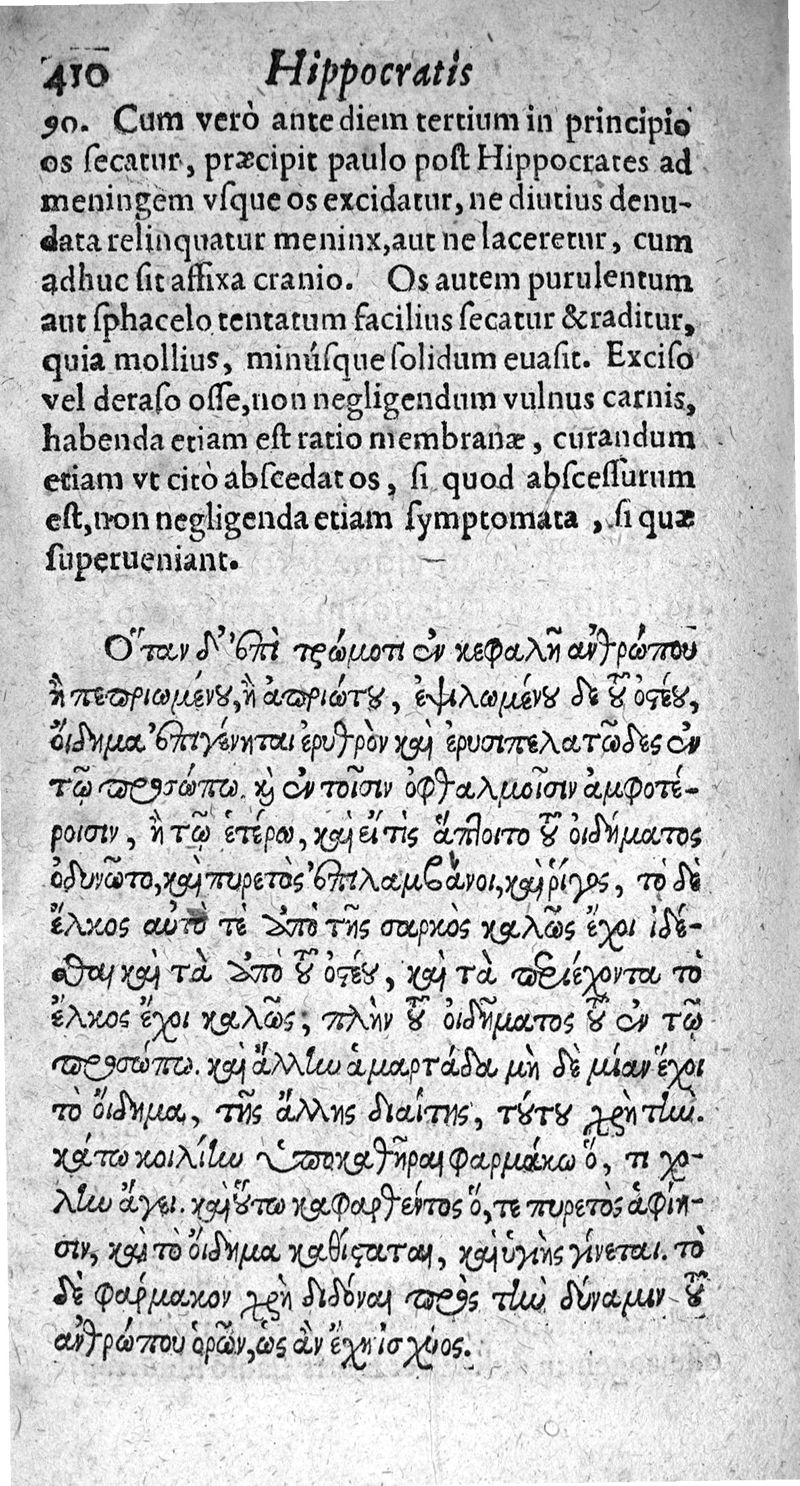 410 Hippocratis
90. Cum verò ante diem tertium in principio
os ſecatur, præcipit paulo poſt Hippocrates ad
meningem vſque os excidatur, ne diutius denu-
data relinquatur meninx, aut ne laceretur, cum
adhuc ſit affixa cranio. Os autem purulentum
aut ſphacelo tentatum facilius ſecatur & raditur,
quia mollius, minúſque ſolidum euaſit. Exciſo
vel deraſo oſſe, non negligendum vulnus carnis,
habenda etiam eſt ratio membranæ, curandum
etiam vt citò abſcedat os, ſi quod abſceſſurum
eſt, non negligenda etiam ſymptomata, ſi quæ
ſuperueniant.
Ὅταν δ' ἐπὶ τρώματι ἐν κεφαλῇ ἀνθρώπου
ἢ πεπριωμένου, ἢ ἀπριώτου, ἐψιλωμένου δὲ τοῦ ὀστέου,
οἴδημα ἐπιγένηται ἐρυθρὸν καὶ ἐρυσιπελατῶδες ἐν
τῷ προσώπω. καὶ ἐν τοῖσιν ὀφθαλμοῖσιν ἀμφοτέ-
ροισιν, ἢ τῷ ἑτέρω, καὶ εἴ τις ἅπτοιτο τοῦ οἰδήματος
ὀδυνῶτο, καὶ πυρετὸς ἐπιλαμβάνοι, καὶ ῥίγος, τὸ δὲ
ἕλκος αὐτὸ τὲ ἀπὸ τῆς σαρκὸς καλῶς ἔχοι ἰδέ-
σθαι καὶ τὰ ἀπὸ τοῦ ὀστέου, καὶ τὰ περιέχοντα τὸ
ἕλκος ἔχοι καλῶς, πλὴν τοῦ οἰδήματος τοῦ ἐν τῷ
προσώπω. καὶ ἄλλην ἁμαρτάδα μὴ δὲ μίαν ἔχοι
τὸ οἴδημα, τῆς ἄλλης διαίτης, τούτου χρὴ τὴν.
κάτω κοιλίην ὑποκαθῆραι φαρμάκω ὅ, τι χο-
λὴν ἄγει. καὶ οὕτω καθαρθέντος ὅ, τε πυρετὸς ἀφίη-
σιν, καὶ τὸ οἴδημα καθίσταται, καὶ ὑγιὴς γίνεται. τὸ
δὲ φάρμακον χρὴ διδόναι πρὸς τὴν δύναμιν τοῦ
ἀνθρώπου ὁρῶν, ὡς ἂν ἔχη ἰσχύος.